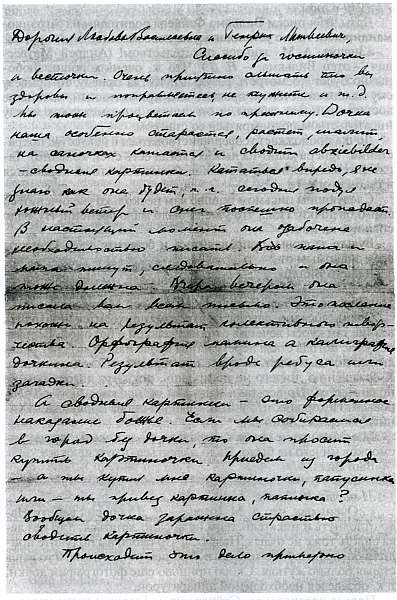 Дорогия Любовь Васильевна и Генрих Матвеевич,
Спасибо за гостиночки
и весточки. Очень приятно слышать что вы
здоровы и поправляетесь, не кужите и т.д.
Мы тоже процветаем по прежнему. Дочка
наша особенно старается, растет, шалит,
на саночках катается и сводит abziebilder
– сводныя картинки. Кататься впредь, я не
знаю как она будет, т.к. сегодня подул
южный ветер и снег поспешно пропадает.
В настоящий момент она озабочена
необходимостью писать. Все папа и
мама пишут, следовательно и она
тоже должна. Вчера вечером она
писала вам всем письмо. Это послание
похоже на результат колективного твор-
чества. Орфография мамина а калиграфия
дочкина. Результат вроде ребуса или
загадки.
А сводныя картинки – это форменное
наказание божье. Если мы собираемся
в город без дочки, то она просит
купить картиночки. Приедем из города
– а ты купил мне картиночки, папусинька
или – ты привез картинки, папочка?
Вообщем дочка заражена страстью
сводить картиночки.
Происходит это дело примерно